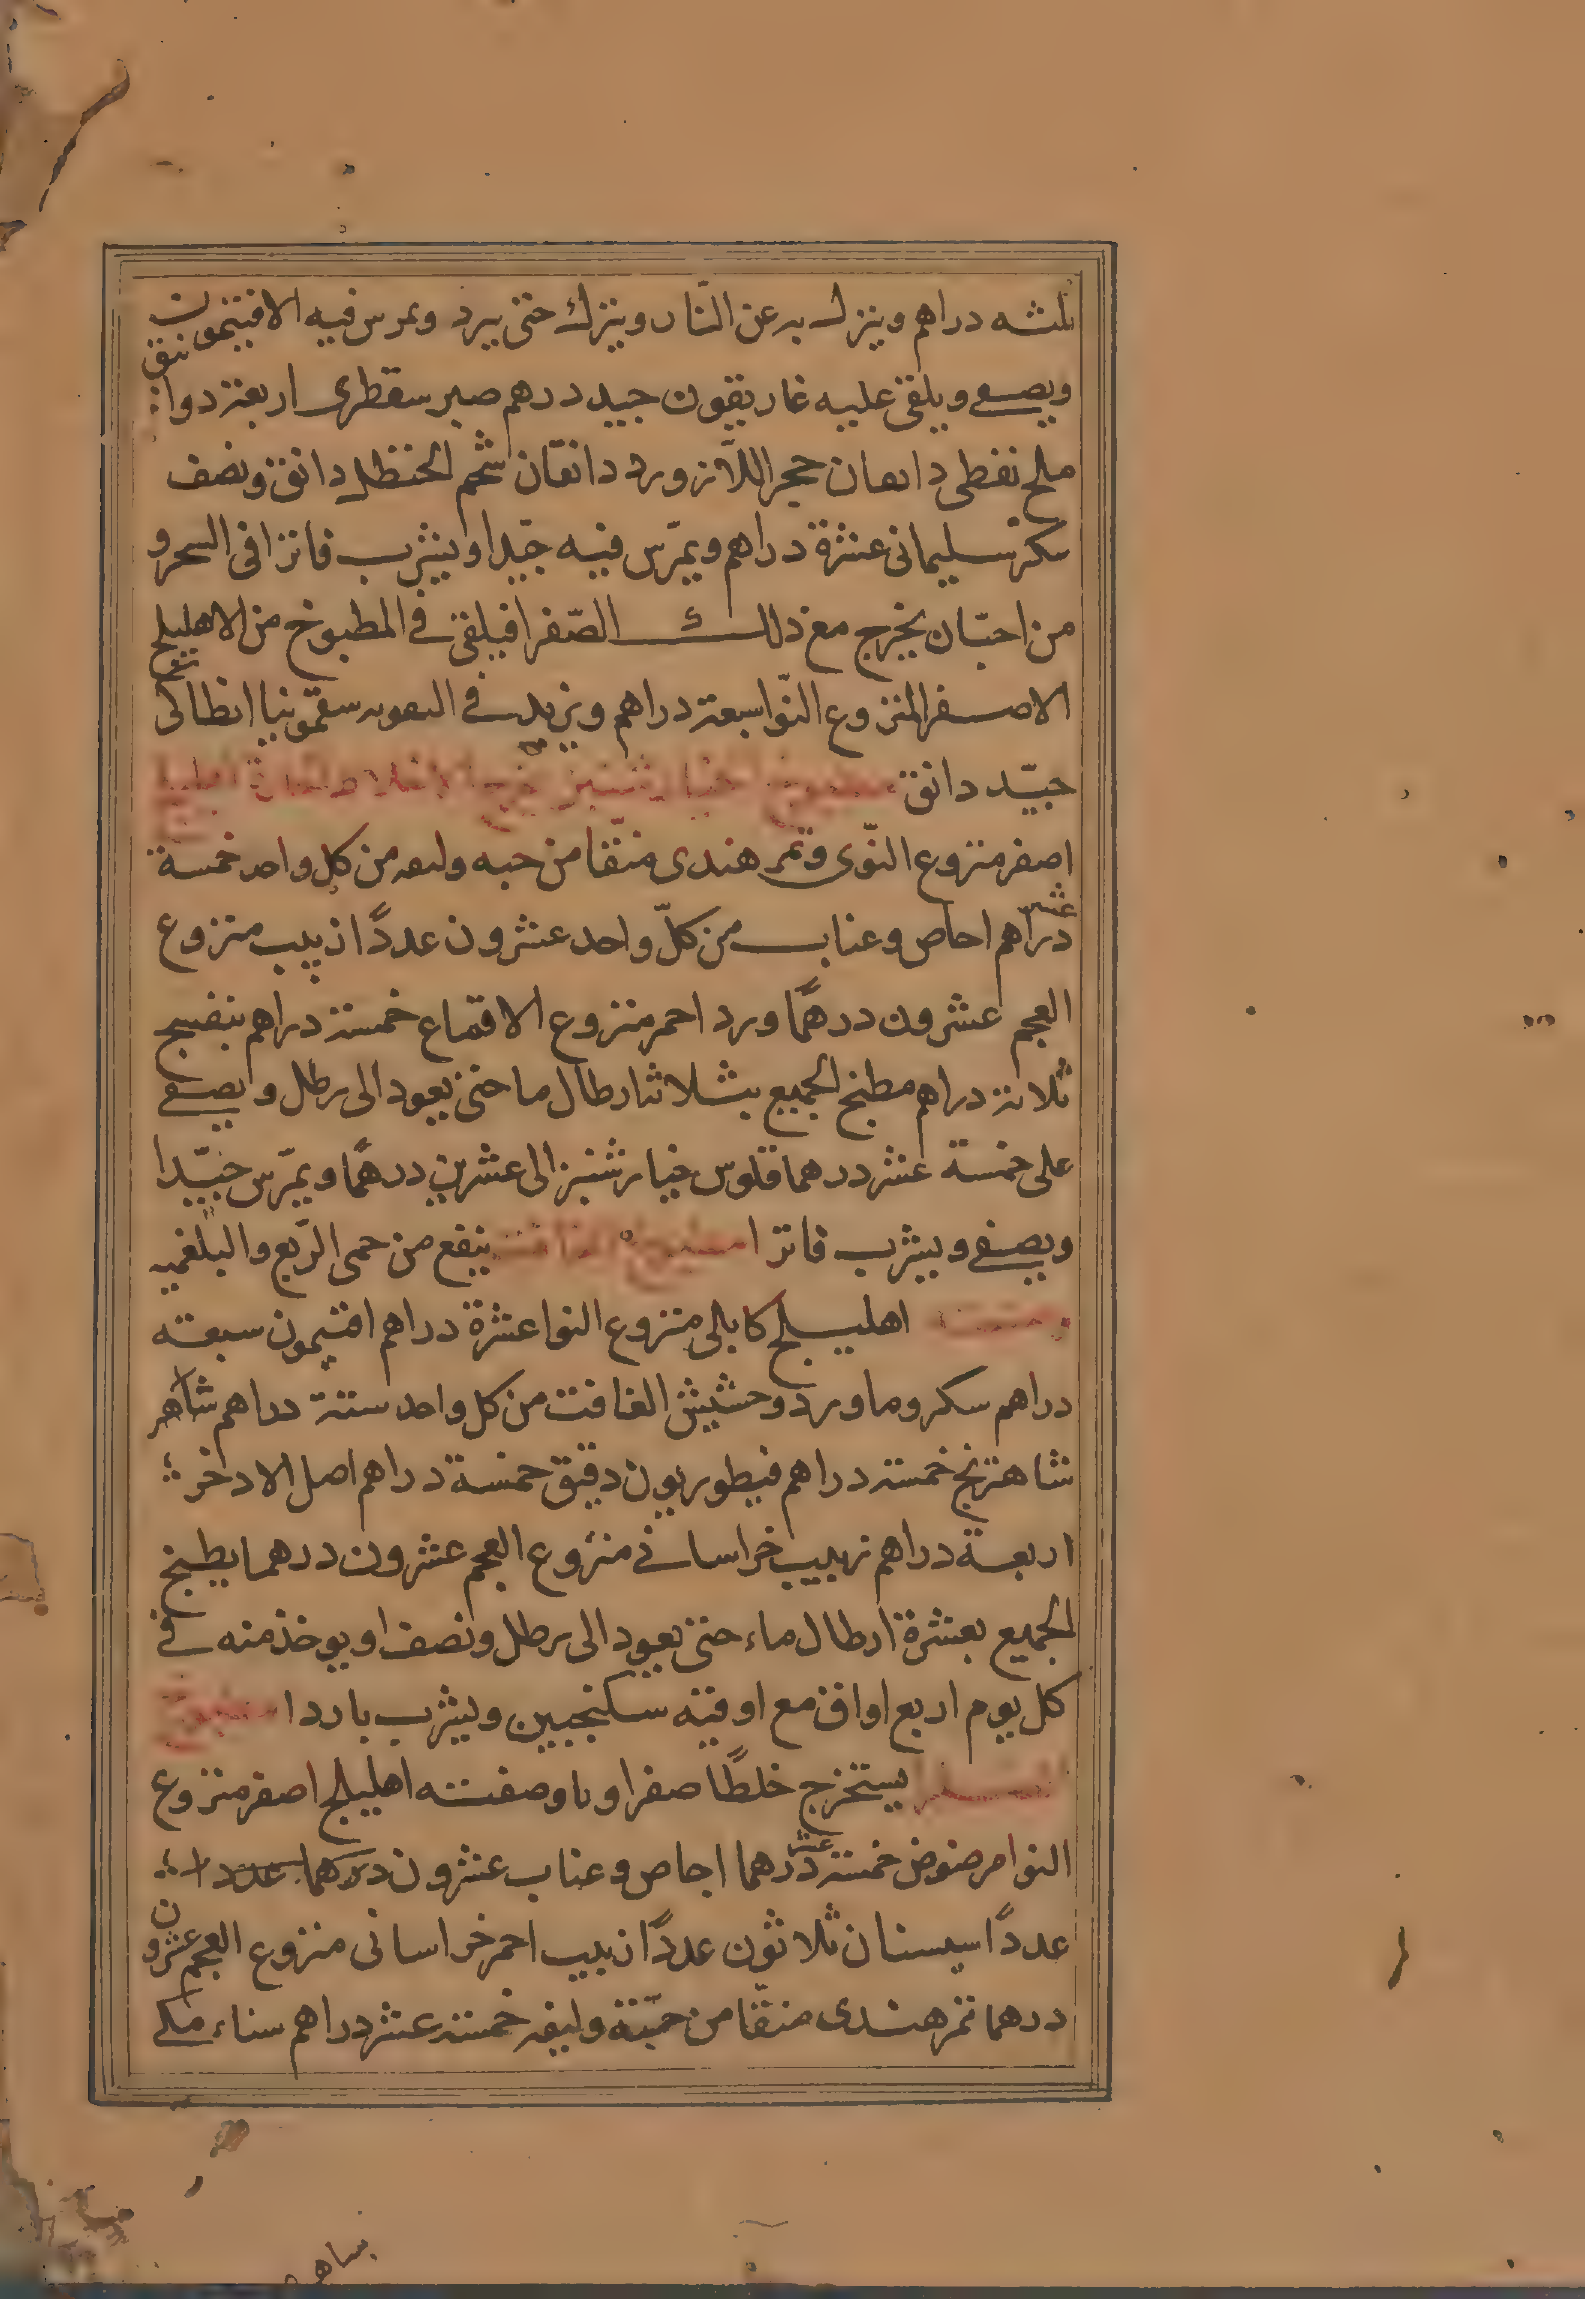 ثلثه دراهم وينزل به عن النّار ويترك حتى يبرد ويمرس فيه الافتيمون
ويصفى ويلقى عليه غاريقون جيد درهم صبر سقطرى اربعة دوانيق
ملح نفطى دانقان حجر اللّازورد دانقان شحم الحنظل دانق ونصف
سكر سليمانى عشرة دراهم ويمرّس فيه جيّدا ويشرب فاترا فى السحر و
من احبّ ان يخرج مع ذلك الصّفرا فيلقى فى المطبوخ من الاهليلج
الاصفر المنزوع النّوا سبعة دراهم ويزيد فى سقمونيا انطاكى
جيّد دانق مطبوخ الخيارشنبر يخرج الاخلاط اهليلج
اصفر منزوع النّوى وتمر هندى منقّا من حبه وليفه من كل واحد خمسة
عشر دراهم اجاص وعناب من كلّ واحد عشرون عددًا زبيب منزوع
العجم عشرون درهمًا ورد احمر منزوع الاقماع خمسة دراهم بنفسج
ثلاثة دراهم مطبخ الجميع بثلاثة ارطال ما حتى يعود الى رطل ويصفى
على خمسة عشر درهما فلوس خيارشنبر الى عشرين درهمًا ويمرّس جيّدا
ويصفى ويشرب فاترا مطبوخ الغافت ينفع من حمى الرّبع والبلغميه
وصفته اهليلج كابلى منزوع النوا عشرة دراهم افتيمون سبعته
دراهم سكر وماورد وحشيش الغافت من كل واحد ستة دراهم شاهر
شاهترج خمسة دراهم قنطوريون دقيق خمسة دراهم اصل الادخر
اربعة دراهم زبيب خراسانى منزوع العجم عشرون درهما يطبخ
الجميع بعشرة ارطال ماء حتى يعود الى رطل ونصف او يوخذ منه فى
كل يوم اربع اواق مع اوقيه سكنجبين ويشرب باردا مطبوخ
يستخرج خلطًا صفراويا وصفته اهليلج اصفر منزوع
النوا مرضوض خمسة عشر درهما اجاص وعناب عشرون درهما عددا
عددًا سبستان ثلاثون عددًا زبيب احمر خراسانى منزوع العجم عشرون
درهما تمر هندى منقّا من حبّته وليفه خمسة عشر دراهم سناء مكى